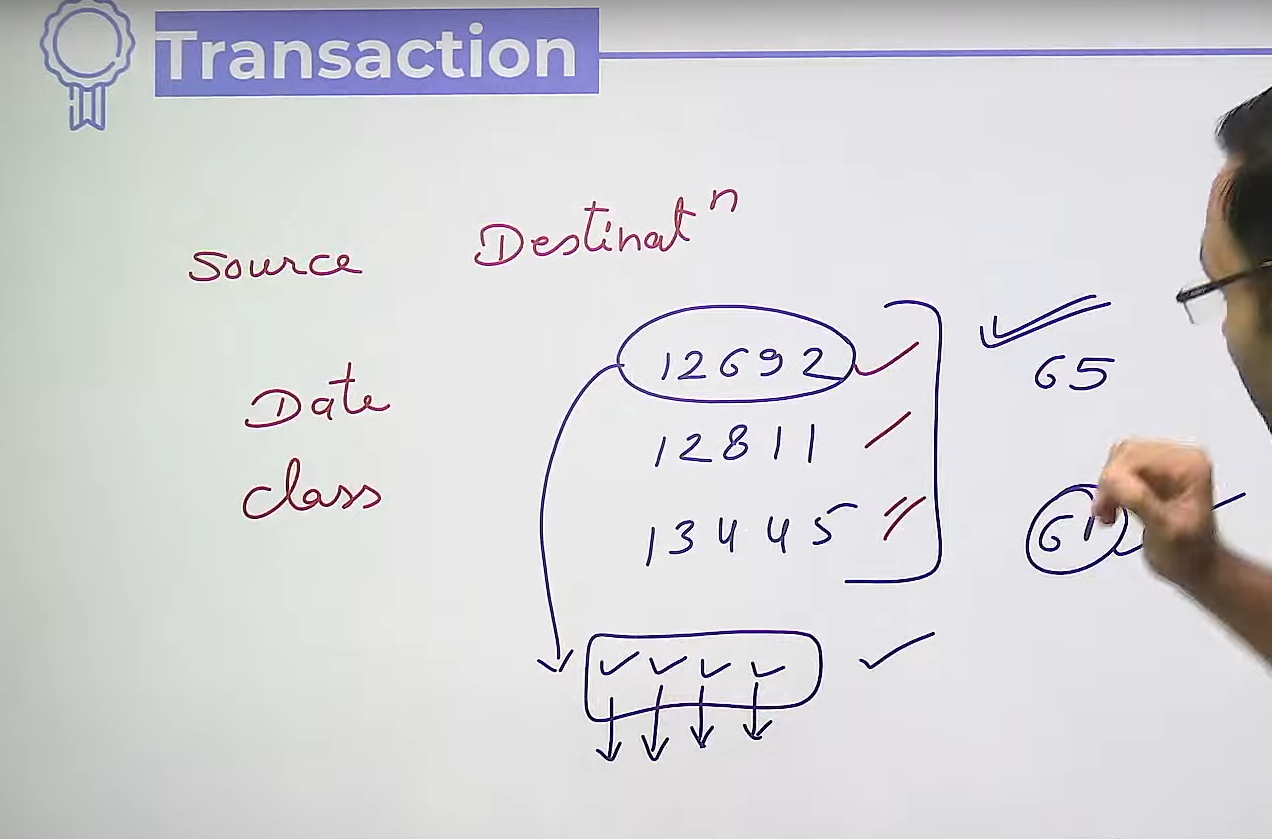 Transaction
Source Destinatⁿ
Date
class
12692
12811
13445
65
61